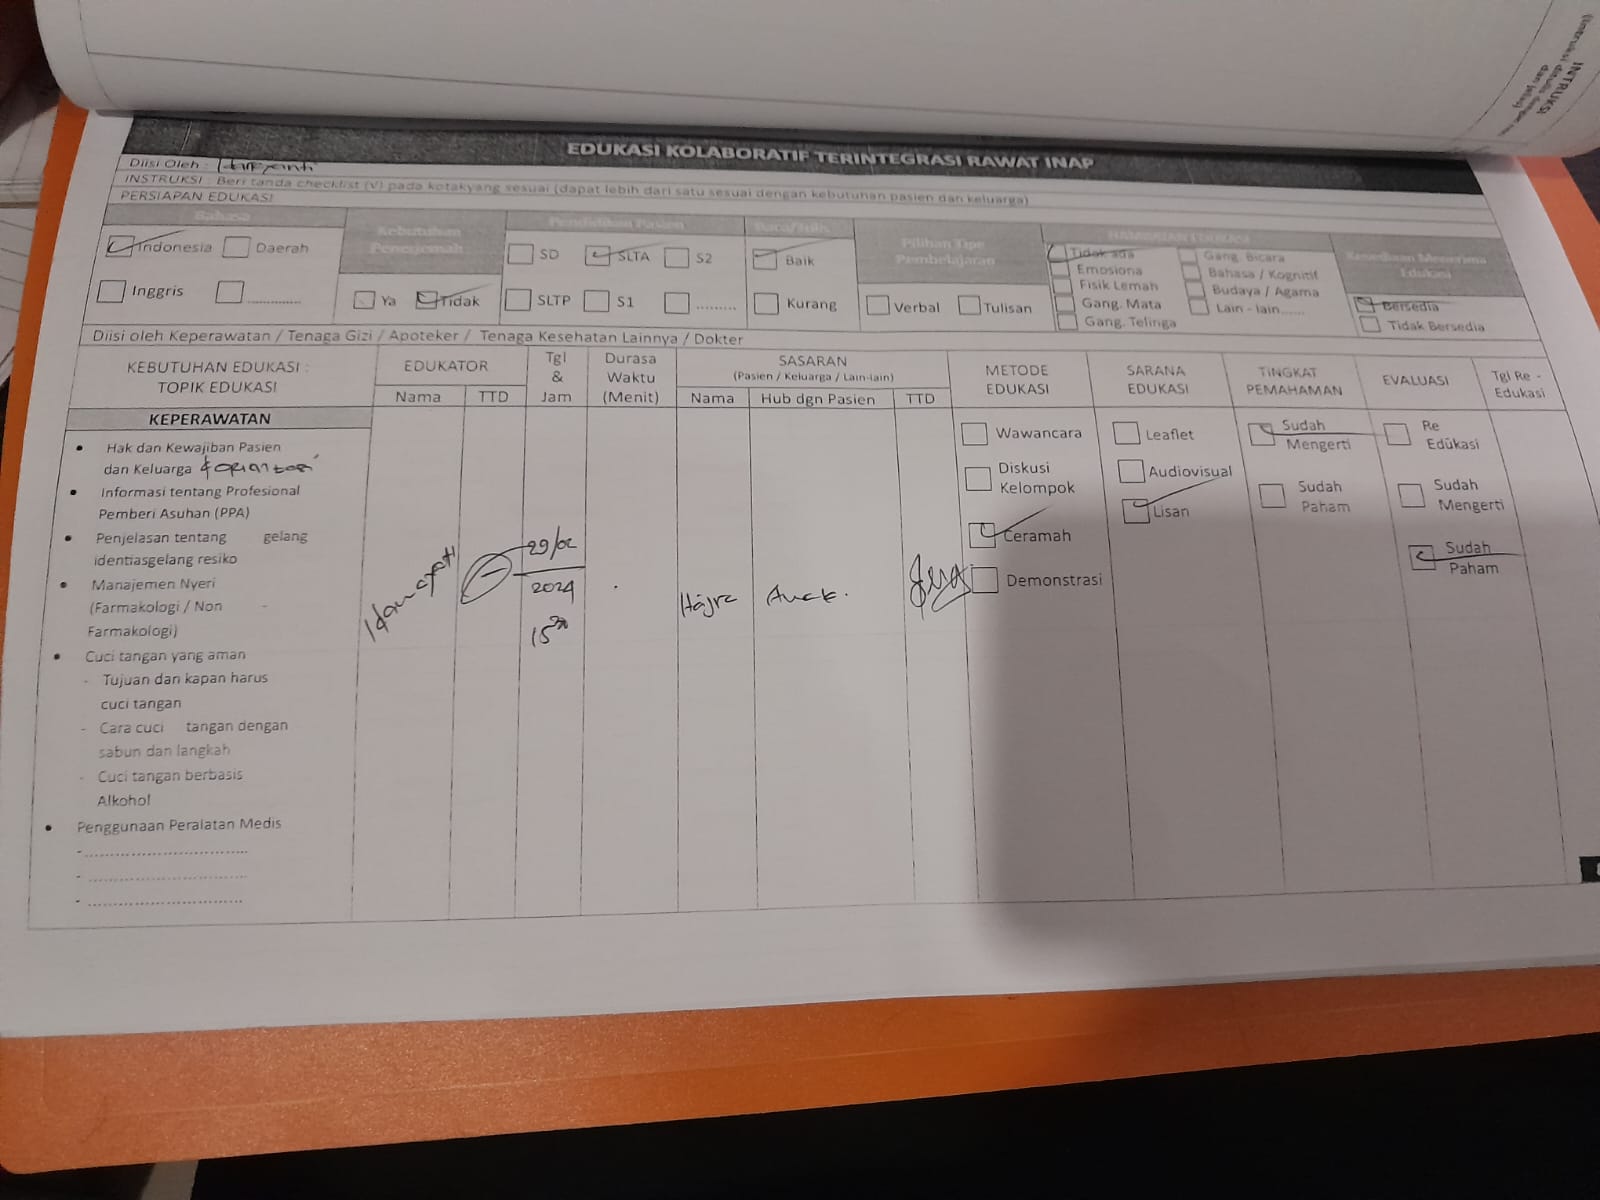 (Instruksi ditulis
INTRUKSI
dan jelas)
EDUKASI KOLABORATIF TERINTEGRASI RAWAT INAP
Diisi Oleh :
INSTRUKSI : Beri tanda checklist (√) pada kotakyang sesuai (dapat lebih dari satu sesuai dengan kebutuhan pasien dan keluarga)
PERSIAPAN EDUKASI
Bahasa
Indonesia Daerah
Inggris ............
Kebutuhan
Penerjemah
Ya Tidak
Pendidikan Pasien
SD SLTA S2
SLTP S1 .........
Baca/Tulis
Baik
Kurang
Pilihan Tipe
Pembelajaran
Verbal Tulisan
HAMBATAN EDUKASI
Tidak ada Gang. Bicara
Emosiona Bahasa / Kognitif
Fisik Lemah Budaya / Agama
Gang. Mata Lain - lain......
Gang. Telinga
Kesediaan Menerima
Edukasi
Bersedia
Tidak Bersedia
Diisi oleh Keperawatan / Tenaga Gizi / Apoteker / Tenaga Kesehatan Lainnya / Dokter
KEBUTUHAN EDUKASI :
TOPIK EDUKASI
EDUKATOR
Nama TTD
Tgl
&
Jam
Durasa
Waktu
(Menit)
SASARAN
(Pasien / Keluarga / Lain-lain)
Nama Hub dgn Pasien TTD
METODE
EDUKASI
SARANA
EDUKASI
TINGKAT
PEMAHAMAN
EVALUASI
Tgl Re -
Edukasi
KEPERAWATAN
• Hak dan Kewajiban Pasien
dan Keluarga & orientasi
• Informasi tentang Profesional
Pemberi Asuhan (PPA)
• Penjelasan tentang gelang
identiasgelang resiko
• Manajemen Nyeri
(Farmakologi / Non -
Farmakologi)
• Cuci tangan yang aman
- Tujuan dan kapan harus
cuci tangan
- Cara cuci tangan dengan
sabun dan langkah
- Cuci tangan berbasis
Alkohol
• Penggunaan Peralatan Medis
-..............................
-..............................
-..............................
29/02
2024
15
Hajra
Anak.
Wawancara
Diskusi
Kelompok
Ceramah
Demonstrasi
Leaflet
Audiovisual
Lisan
Sudah
Mengerti
Sudah
Paham
Re
Edukasi
Sudah
Mengerti
Sudah
Paham